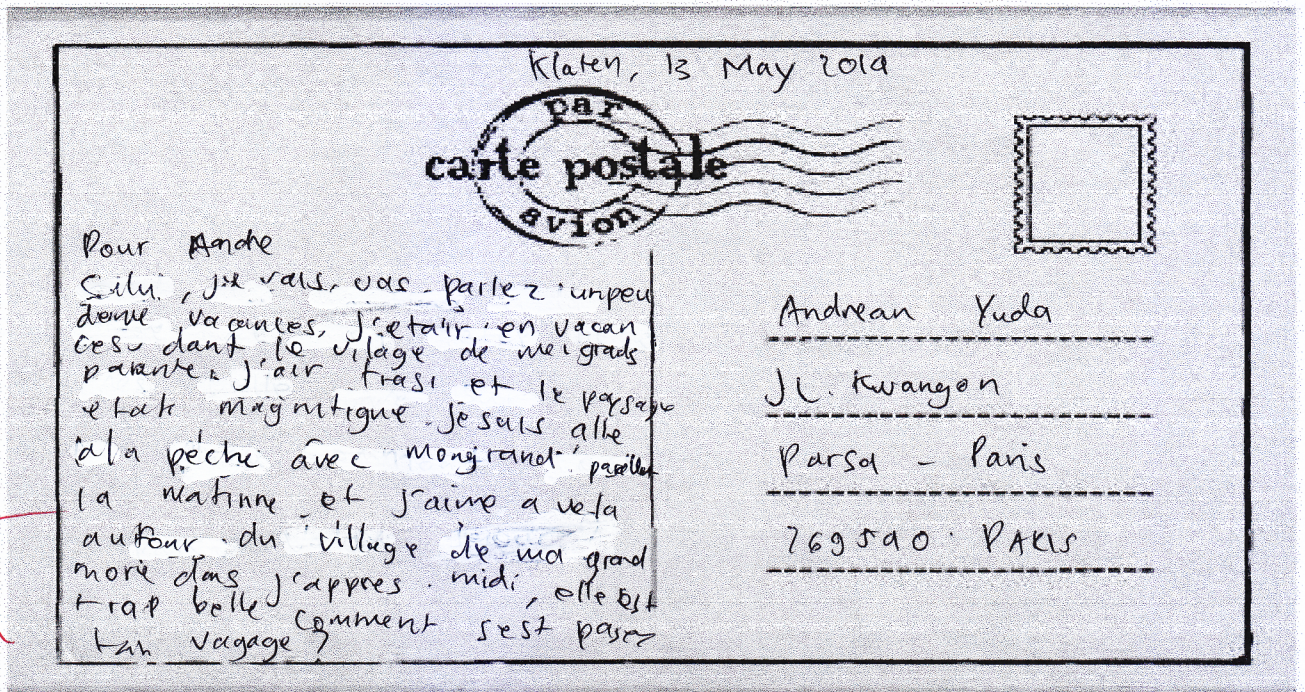 Klaten, 13 May 2019
par
carte postale
avion
Pour Andre
Salui, je vais, vas parlez unpeu
deme vacances, j'etair en vacan
cesu dant le village de meigrads
parante. j'air frasi et le paysage
etait magnitigue. je suis alle
à la pèche avec mongrand
la matinne et j'aime a vela
autour du village de ma grand
more dans j'appres midi, elle est
trap belle comment s'est pasez
tan vagage?
Andrean Yuda
JL. Kwangon
Parsa - Paris
269590. PARIS